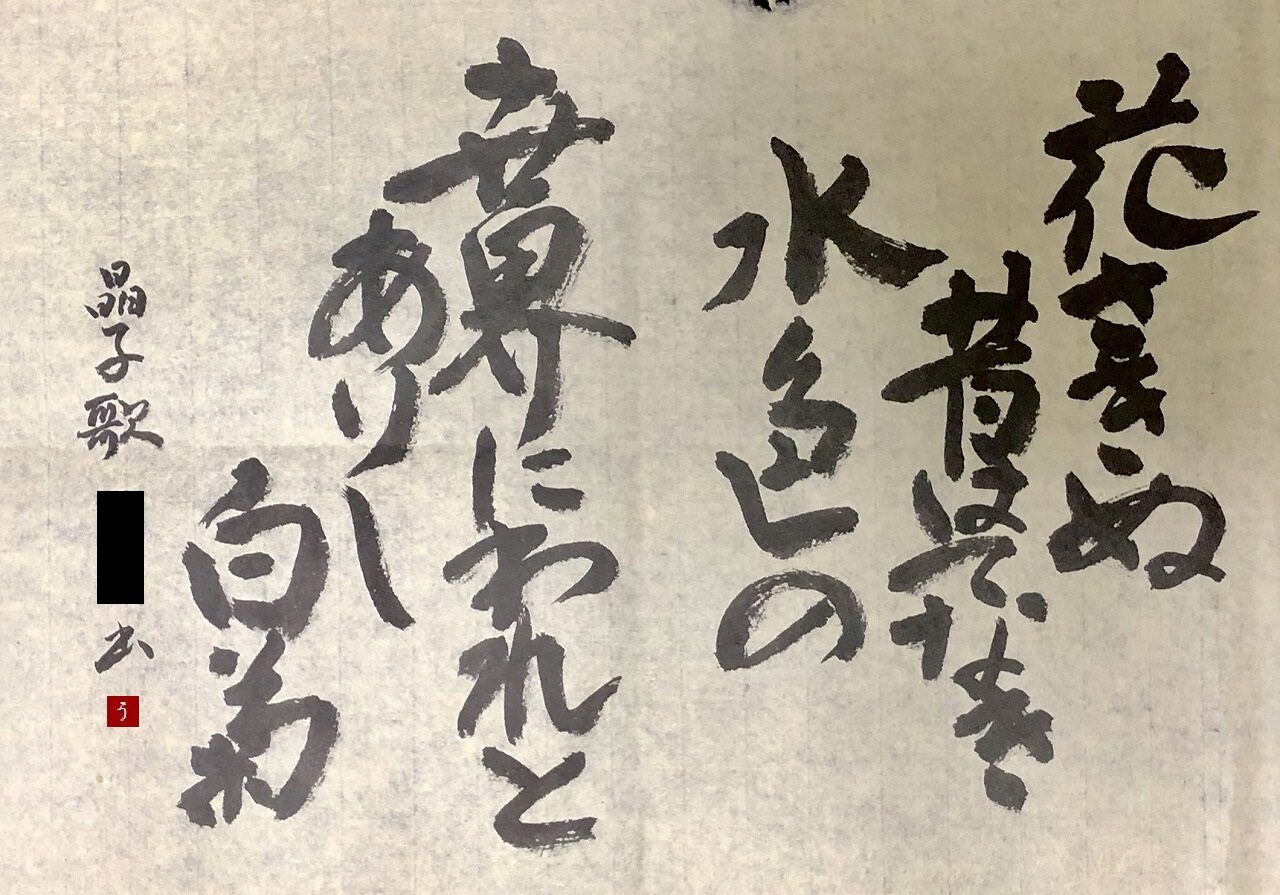 花さきぬ
昔はてなき
水色の
世界にわれと
ありし
白菊
晶子歌
書
う